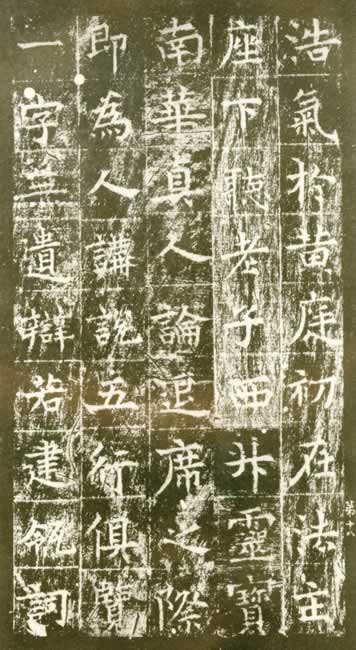 浩氣於黄庭初在法主
座下聽老子西升靈寶
南華真人論退席之際
即為人講説五行俱覽
一字無遺辯若建瓴詞
第十八